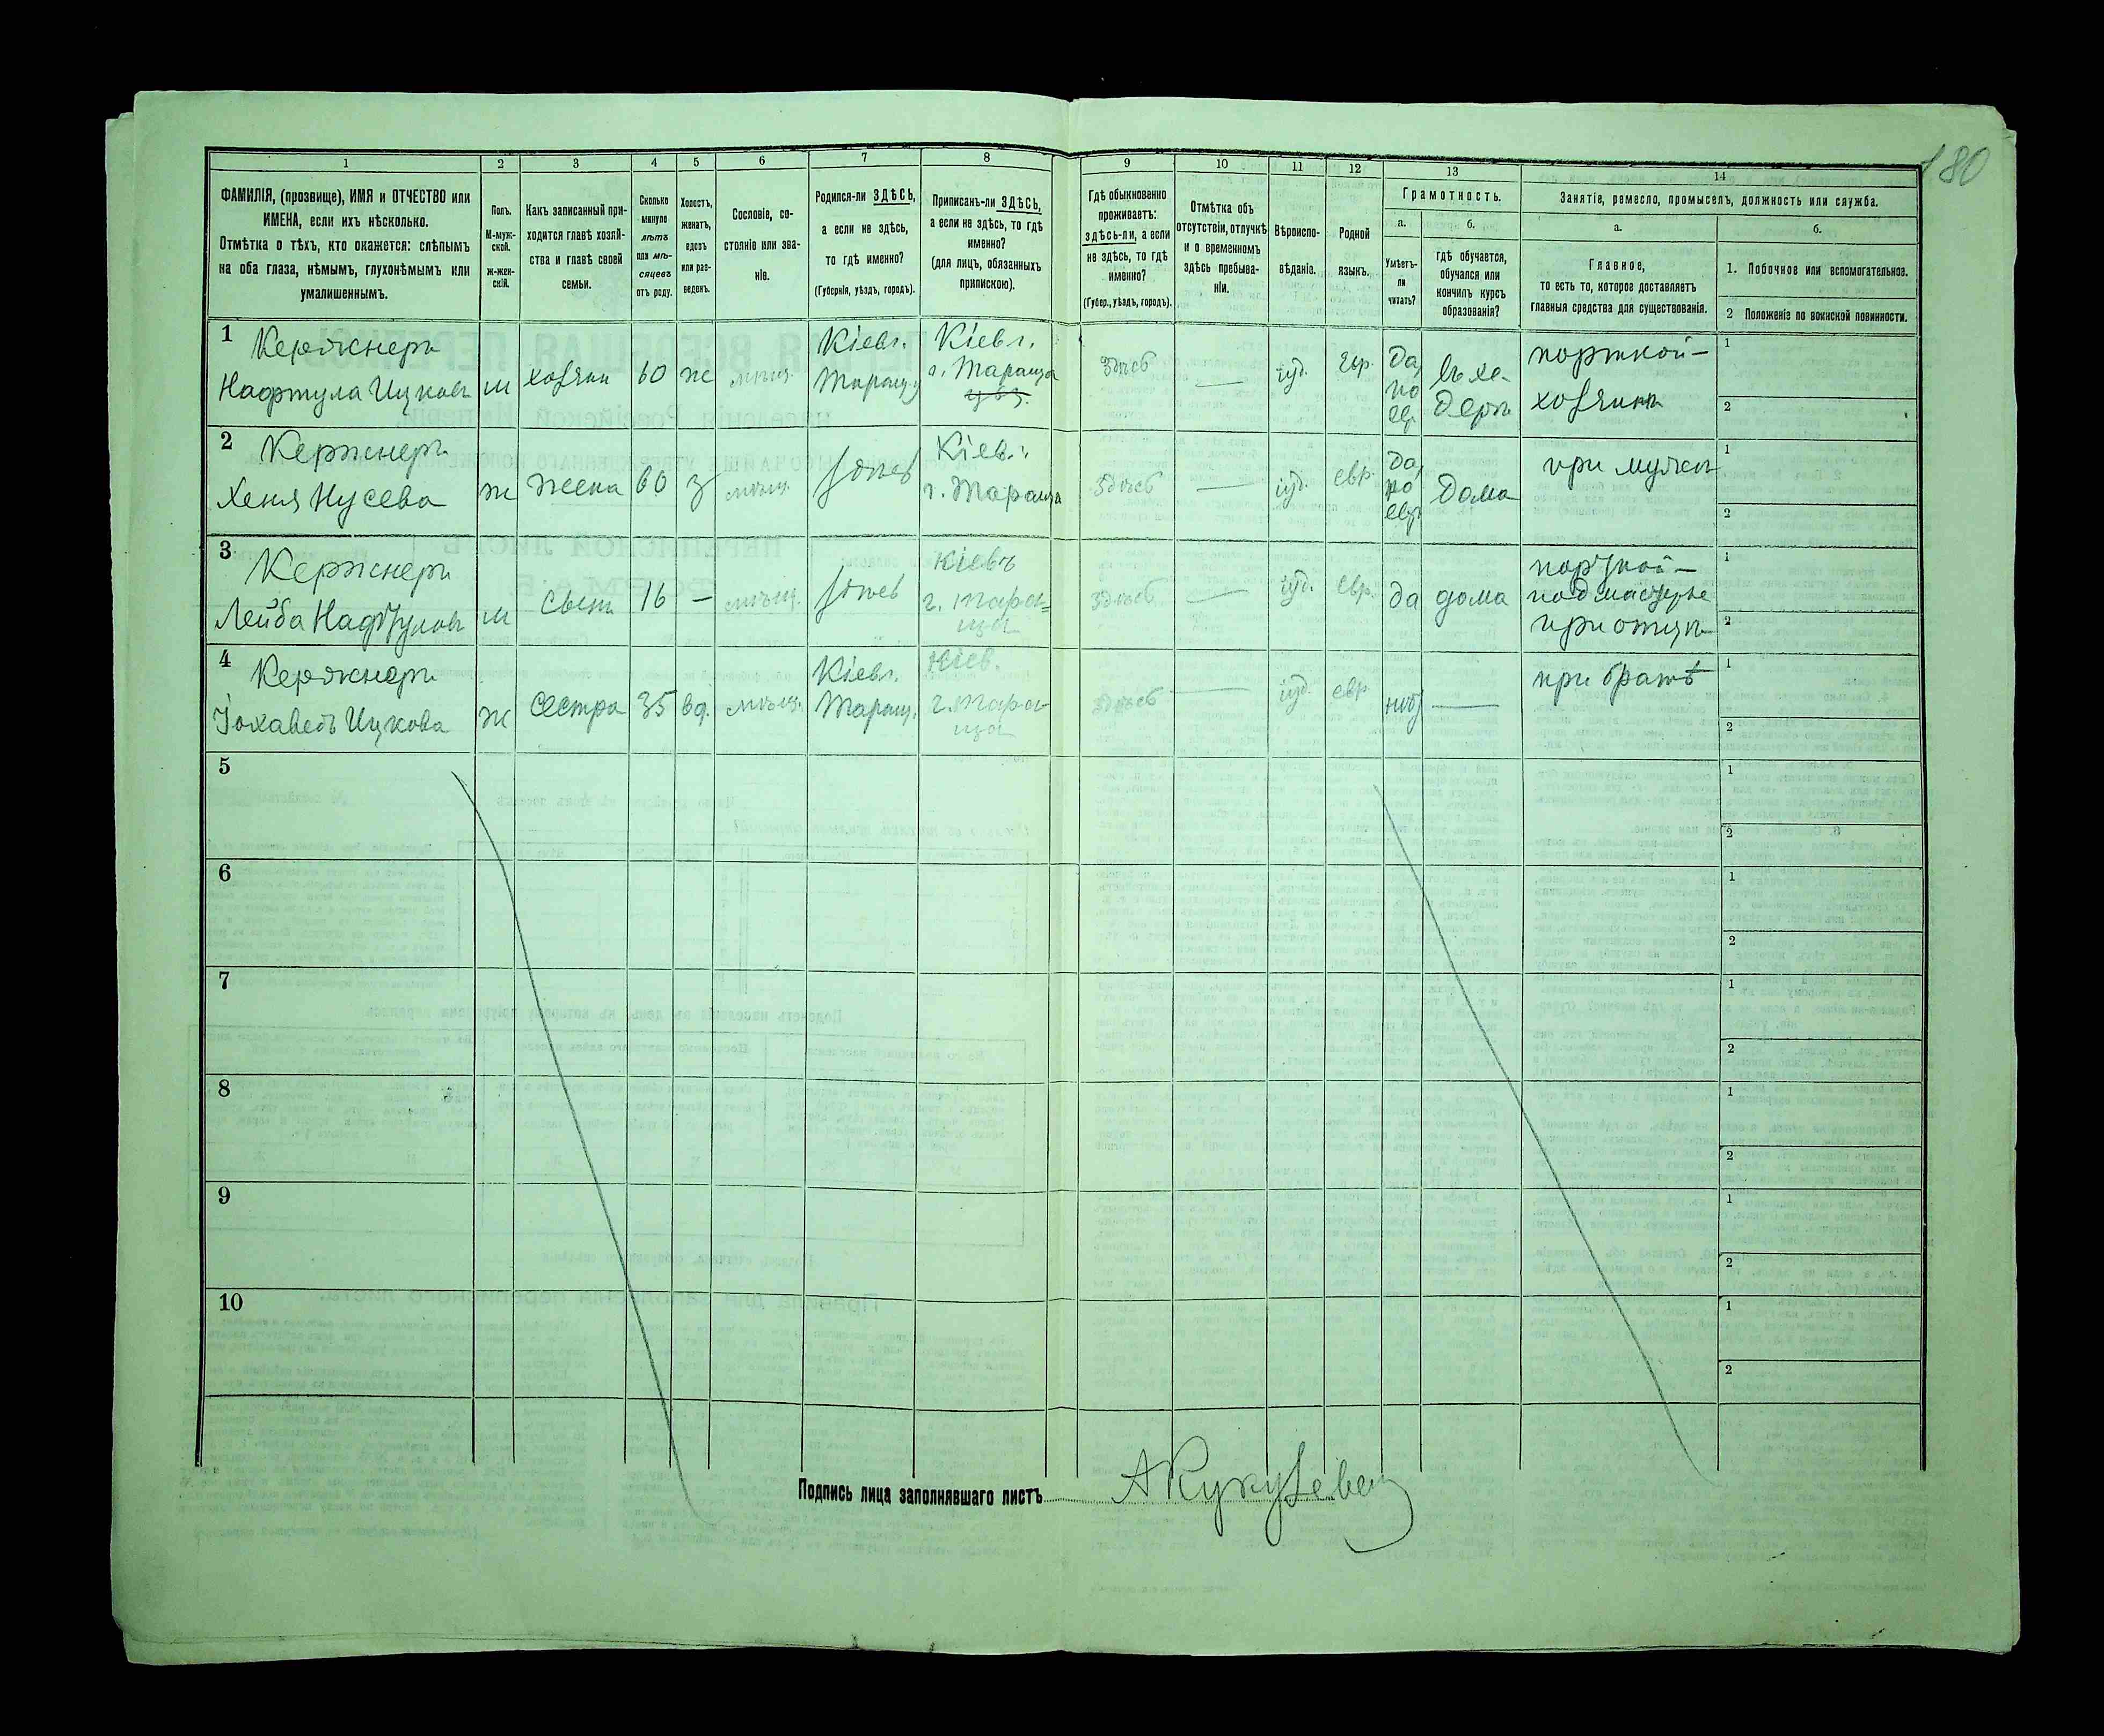 180
1 2 3 4 5 6 7 8 9 10 11 12 13 14
ФАМИЛІЯ, (прозвище), ИМЯ и ОТЧЕСТВО или
ИМЕНА, если ихъ нѣсколько.
Отмѣтка о тѣхъ, кто окажется: слѣпымъ
на оба глаза, нѣмымъ, глухонѣмымъ или
умалишеннымъ.
Полъ.
М-муж-
ской.
ж-жен-
скій.
Какъ записанный при-
ходится главѣ хозяй-
ства и главѣ своей
семьи.
Сколько
минуло
лѣтъ
или мѣ-
сяцевъ
отъ роду.
Холостъ,
женатъ,
вдовъ
или раз-
веденъ.
Сословіе, со-
стояніе или зва-
ніе.
Родился-ли ЗДѢСЬ,
а если не здѣсь,
то гдѣ именно?
(Губернія, уѣздъ, городъ).
Приписанъ-ли ЗДѢСЬ,
а если не здѣсь, то гдѣ
именно?
(для лицъ, обязанныхъ
припискою).
Гдѣ обыкновенно
проживаетъ:
здѣсь-ли, а если
не здѣсь, то гдѣ
именно?
(Губер., уѣздъ, городъ).
Отмѣтка объ
отсутствіи, отлучкѣ
и о временномъ
здѣсь пребыва-
ніи.
Вѣроиспо-
вѣданіе.
Родной
языкъ.
Грамотность.
а.
Умѣетъ-
ли
читать?
б.
гдѣ обучается,
обучался или
кончилъ курсъ
образованія?
Занятіе, ремесло, промыселъ, должность или служба.
а.
Главное,
то есть то, которое доставляетъ
главныя средства для существованія.
б.
1. Побочное или вспомогательное.
2 Положеніе по воинской повинности.
1 Кержнеръ
Нафтула Ицковъ
м
хозяин
60
ж
мѣщ.
Кіевг.
Таращ. у
Кіевг.
г. Тараща
здѣсь
—
іуд.
евр.
да,
по
евр
въ хе-
дерѣ
портной —
хозяинъ
1
2
2 Кержнеръ
Хеня Нусева
ж
жена
60
з
мѣщ.
здѣсь
Кіев. г.
г. Тараща
здѣсь
—
іуд.
евр.
да,
по
евр
дома
при мужѣ
1
2
3 Кержнеръ
Лейба Нафтуловъ
м
сынъ
16
—
мѣщ.
здѣсь
Кіевг
г. Тара=
ща
здѣсь
—
іуд.
евр.
да
дома
портной —
подмастерье
при отцѣ
1
2
4 Кержнеръ
Іохаведъ Ицкова
ж
сестра
35
вд.
мѣщ.
Кіевг.
Таращ.
Кіев.
г. Тара-
ща
здѣсь
—
іуд.
евр.
нѣт
—
при братѣ
1
2
5
1
2
6
1
2
7
1
2
8
1
2
9
1
2
10
1
2
Подпись лица заполнявшаго листъ